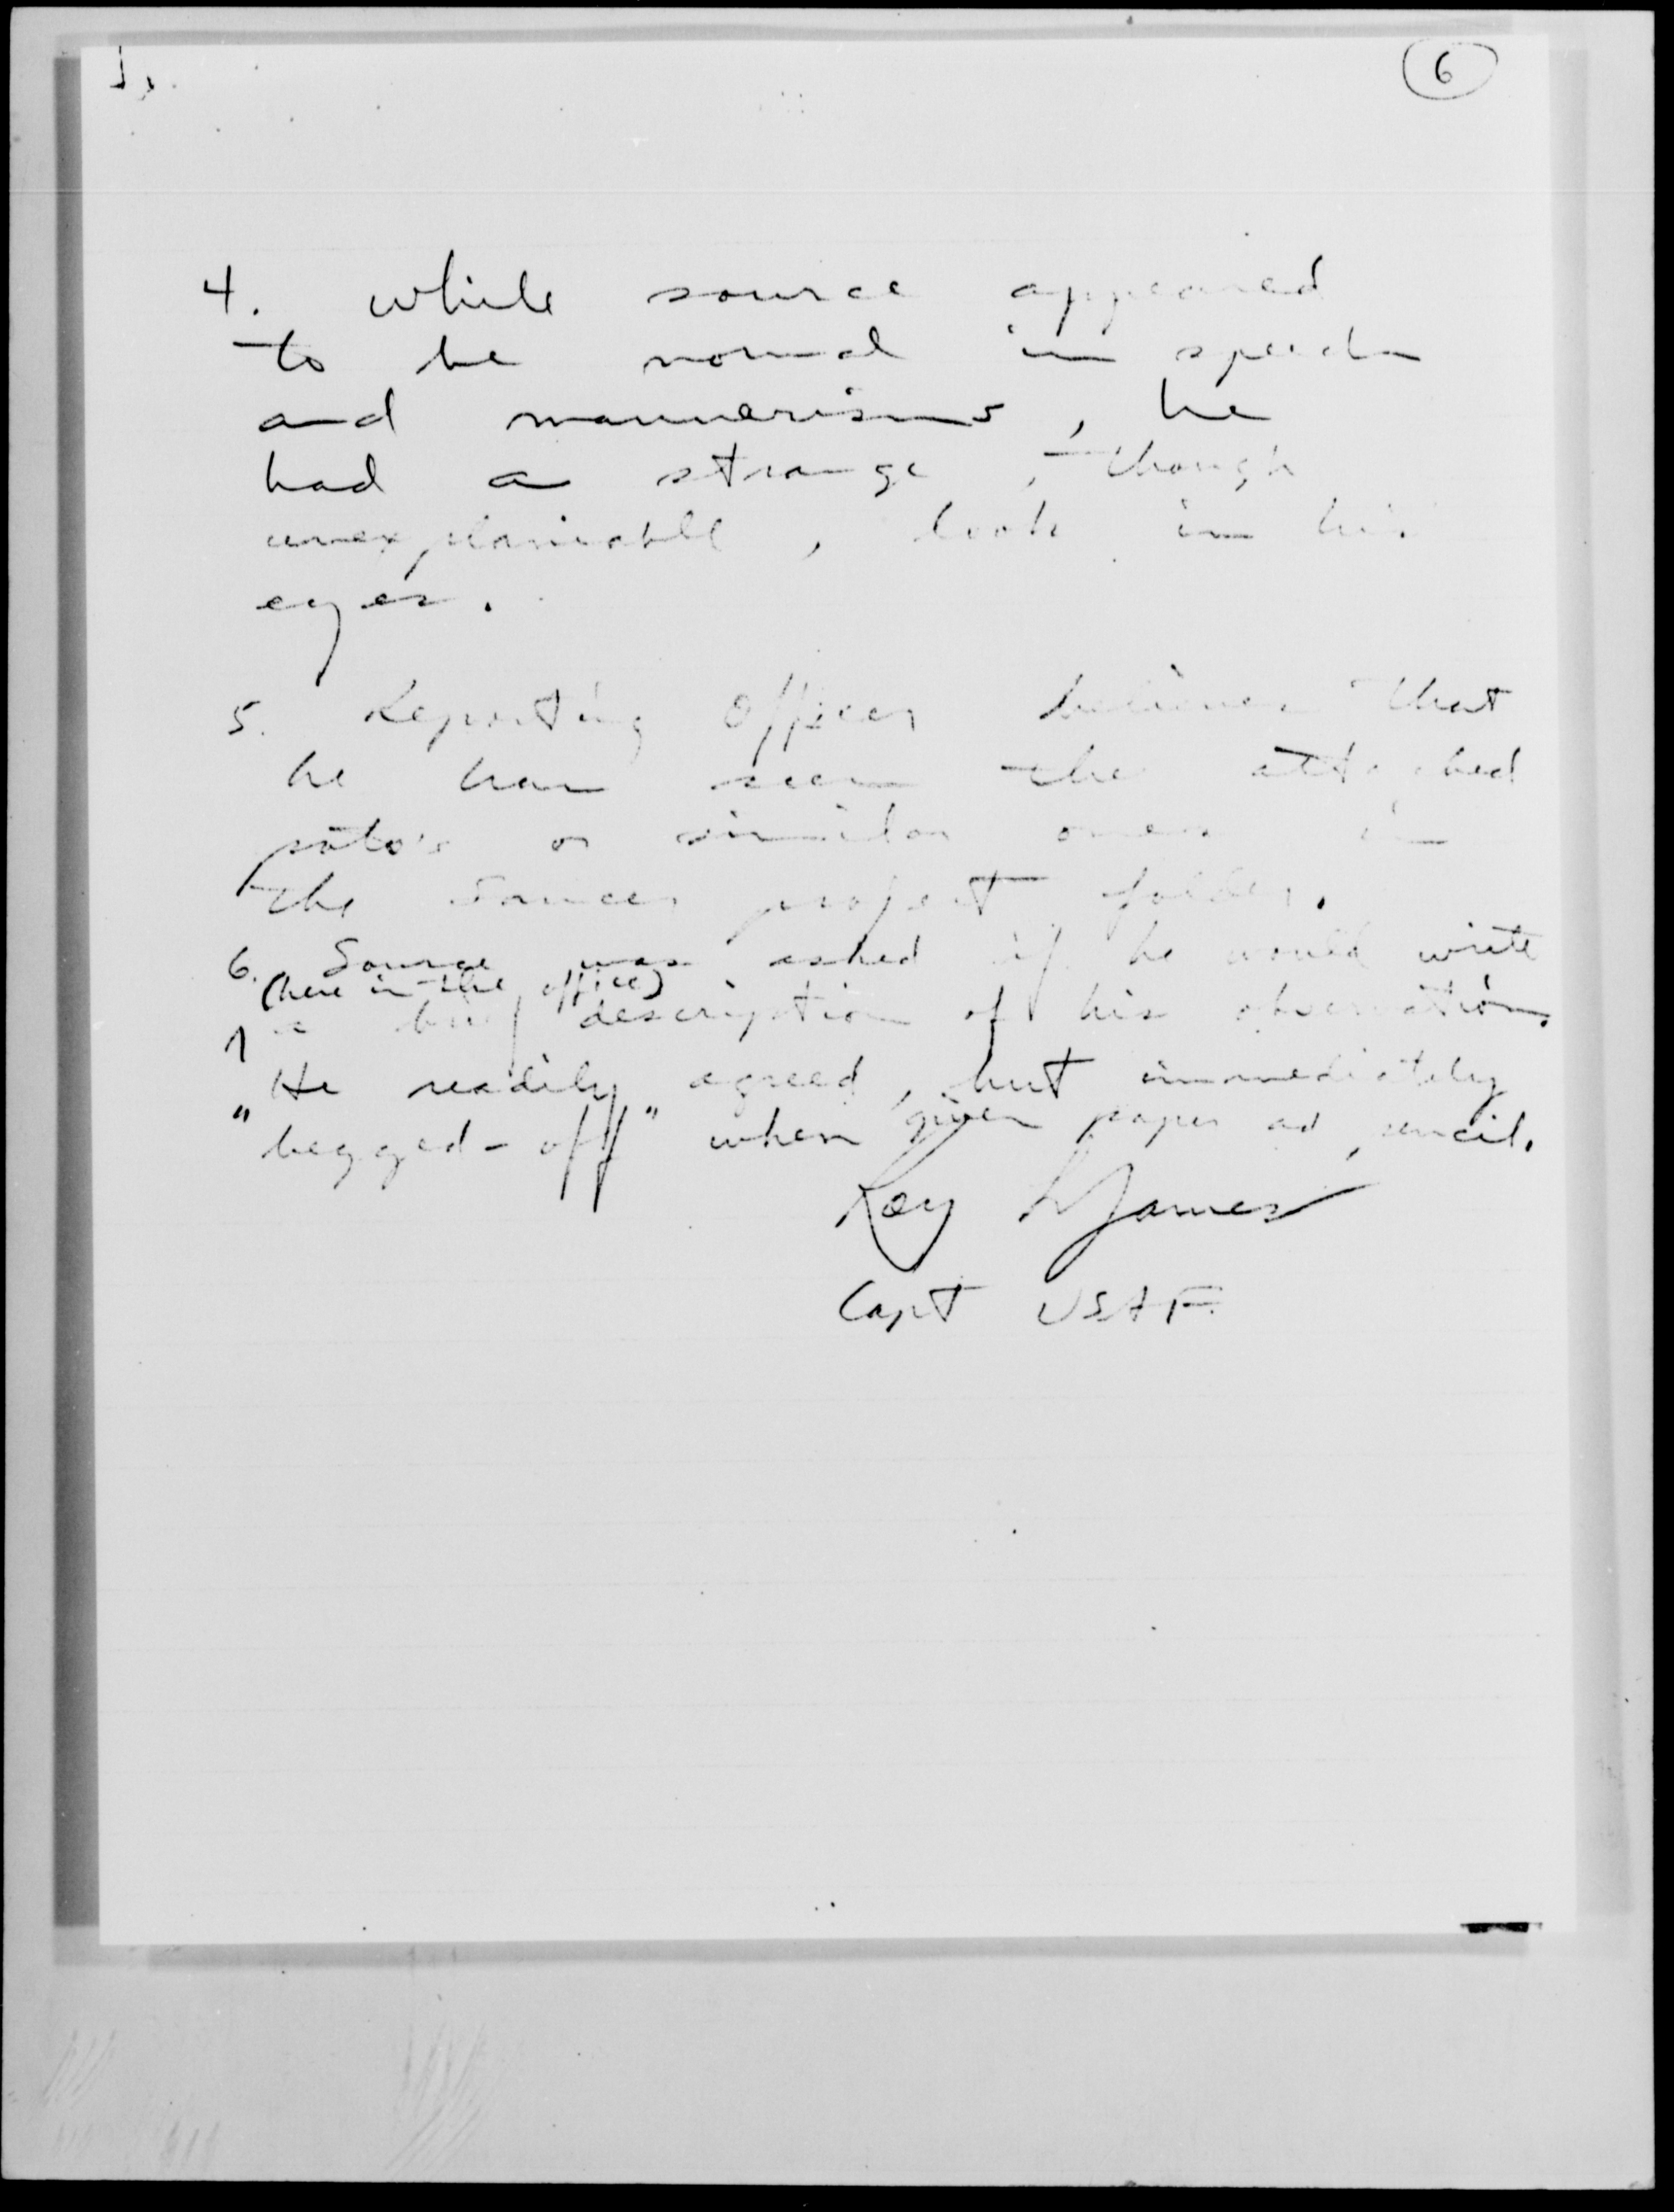 6
4. While source appeared
to be normal in speech
and mannerisms, he
had a strange, though
unexplainable, look in his
eyes.
5. Reporting Officer believes that
he has seen the attached
poto's or similar ones in
the Saucer project folder.
6. Source was asked if he would write
(here in the office)
a brief description of his observation.
He readily agreed, but immediately
"begged-off" when given paper ad pencil.
Roy L James
Capt USAF